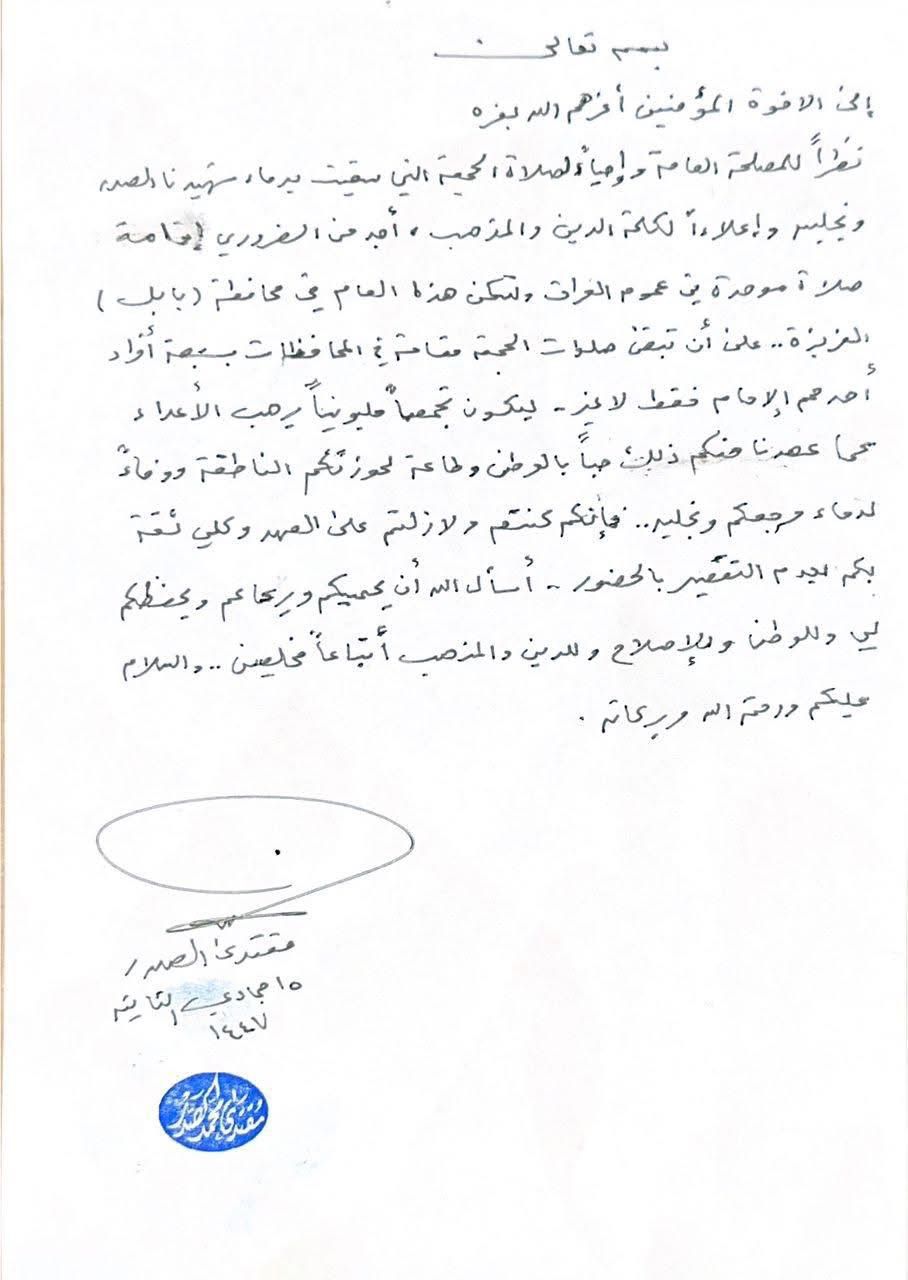 بسمه تعالى
إلى الاخوة المؤمنين أعزهم الله بعزه
نظراً للمصلحة العامة وإحياءً لصلاة الجمعة التي سقيت بدماء شهيدنا الصدر
ونجليه وإعلاءاً لكلمة الدين والمذهب، أجد من الضروري إقامة
صلاة موحدة في عموم العراق ولتكن هذا العام في محافظة (بابل)
العزيزة.. على أن تبقى صلوات الجمعة مقامة في المحافظات بسبعة أفراد
أحدهم الإمام فقط لا غير .. ليكون تجمعاً مليونياً يرهب الأعداء
كما عهدنا منكم ذلك حباً بالوطن وطاعة لحوزتكم الناطقة ووفاءً
لدماء مرجعكم ونجليه.. فإنكم كنتم ولازلتم على العهد وكلي ثقة
بكم لعدم التقصير بالحضور .. أسأل الله أن يحميكم ويرعاكم ويحفظكم
لي وللوطن وللإصلاح وللدين والمذهب أتباعاً مخلصين .. والسلام
عليكم ورحمة الله وبركاته .
مقتدى الصدر
١٥ جمادي الثانية
١٤٤٧
مقتدى محمد الصدر